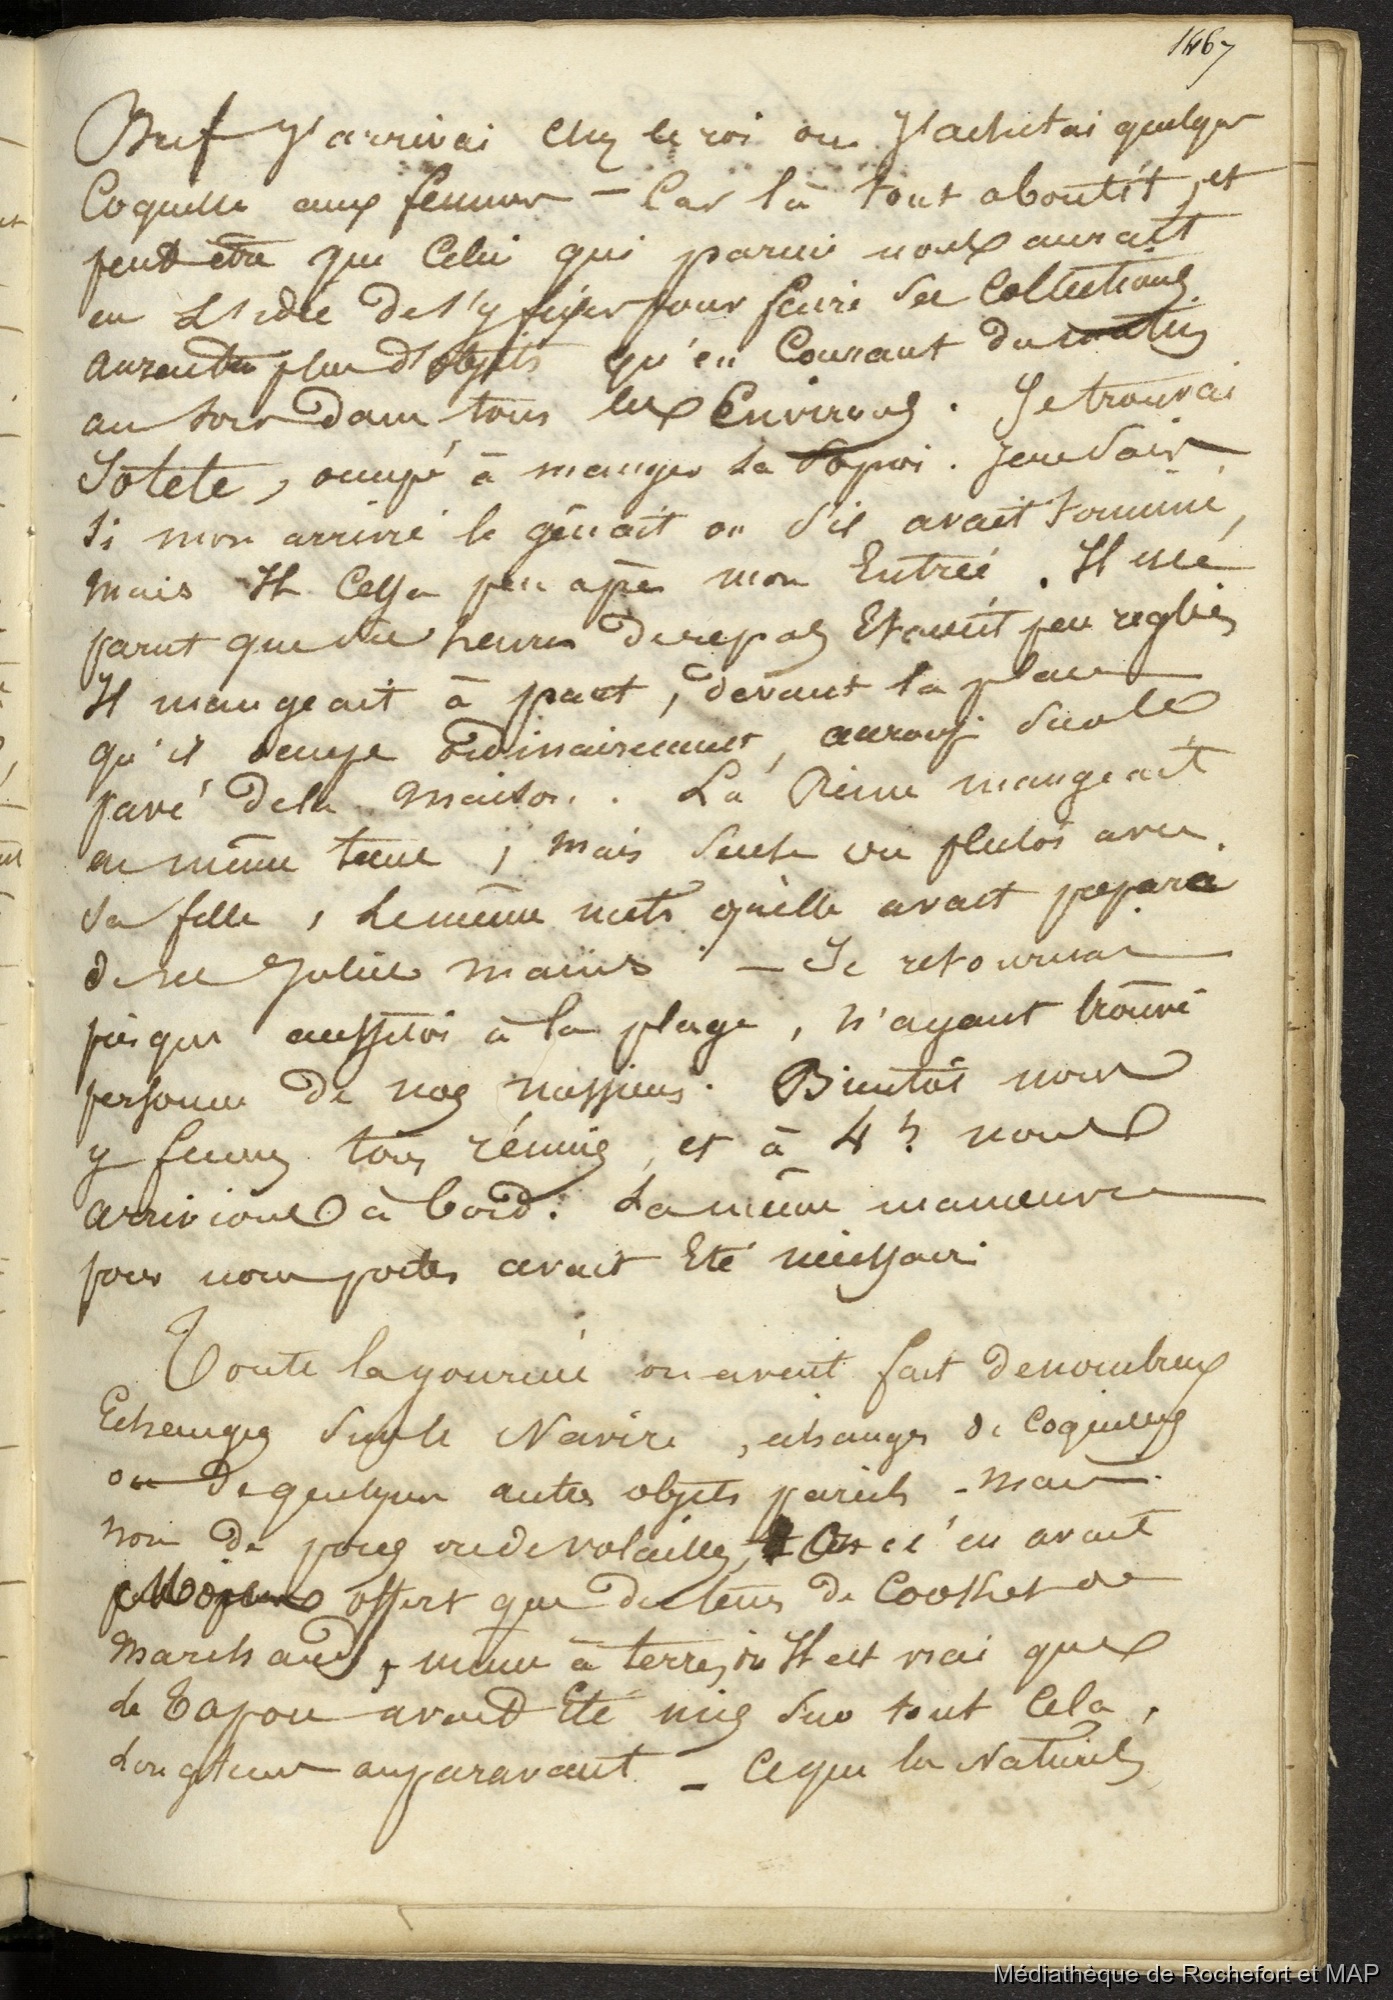 1467
Bref j'arrivai chez le roi ou j'achetai quelques
Coquilles aux femmes - Car là tout aboutit, et
peut être que Celui qui parmi nous aurait
eu L'idée de s'y fixer pour faire des Collections
aurait eu plus d'objets qu'en Courant du matin
au soir dans tous les Environs. Je trouvai
Totete, occupé à manger la Popoi. Je ne sais
si mon arrivée le gênait ou s'il avait terminé,
mais Il Cessa peu après mon Entrée. Il m'a
parut que les heures de repas Etaient peu reglées
Il mangeait à part, devant la place
qu'il occupe ordinairement, accroupi sur le
pavé de la maison. La Reine mangeait
en même tems; mais seule ou plutôt avec
sa fille, le même mets qu'elle avait préparé
de ses jolies mains - Je retournai
presque aussitôt à la plage, n'ayant trouvé
personne de nos messieurs. Bientôt nous
y fumes tous réunis, et à 4h nous
arrivions à bord. La même manœuvre
pour nous porter avait Eté nécessaire.
Toute la journée on avait fait de nombreux
Echanges sur le Navire, échanges de Coquilles
ou de quelques autres objets pareils - mais
non de porcs ou de volailles, On n'en avait
offert que de leurs de Coq et de
marchands, même à terre, où Il est vrai que
le Tapou avait Eté mis sur tout Cela,
Longtems auparavant - Ce que les Naturels
Médiathèque de Rochefort et MAP